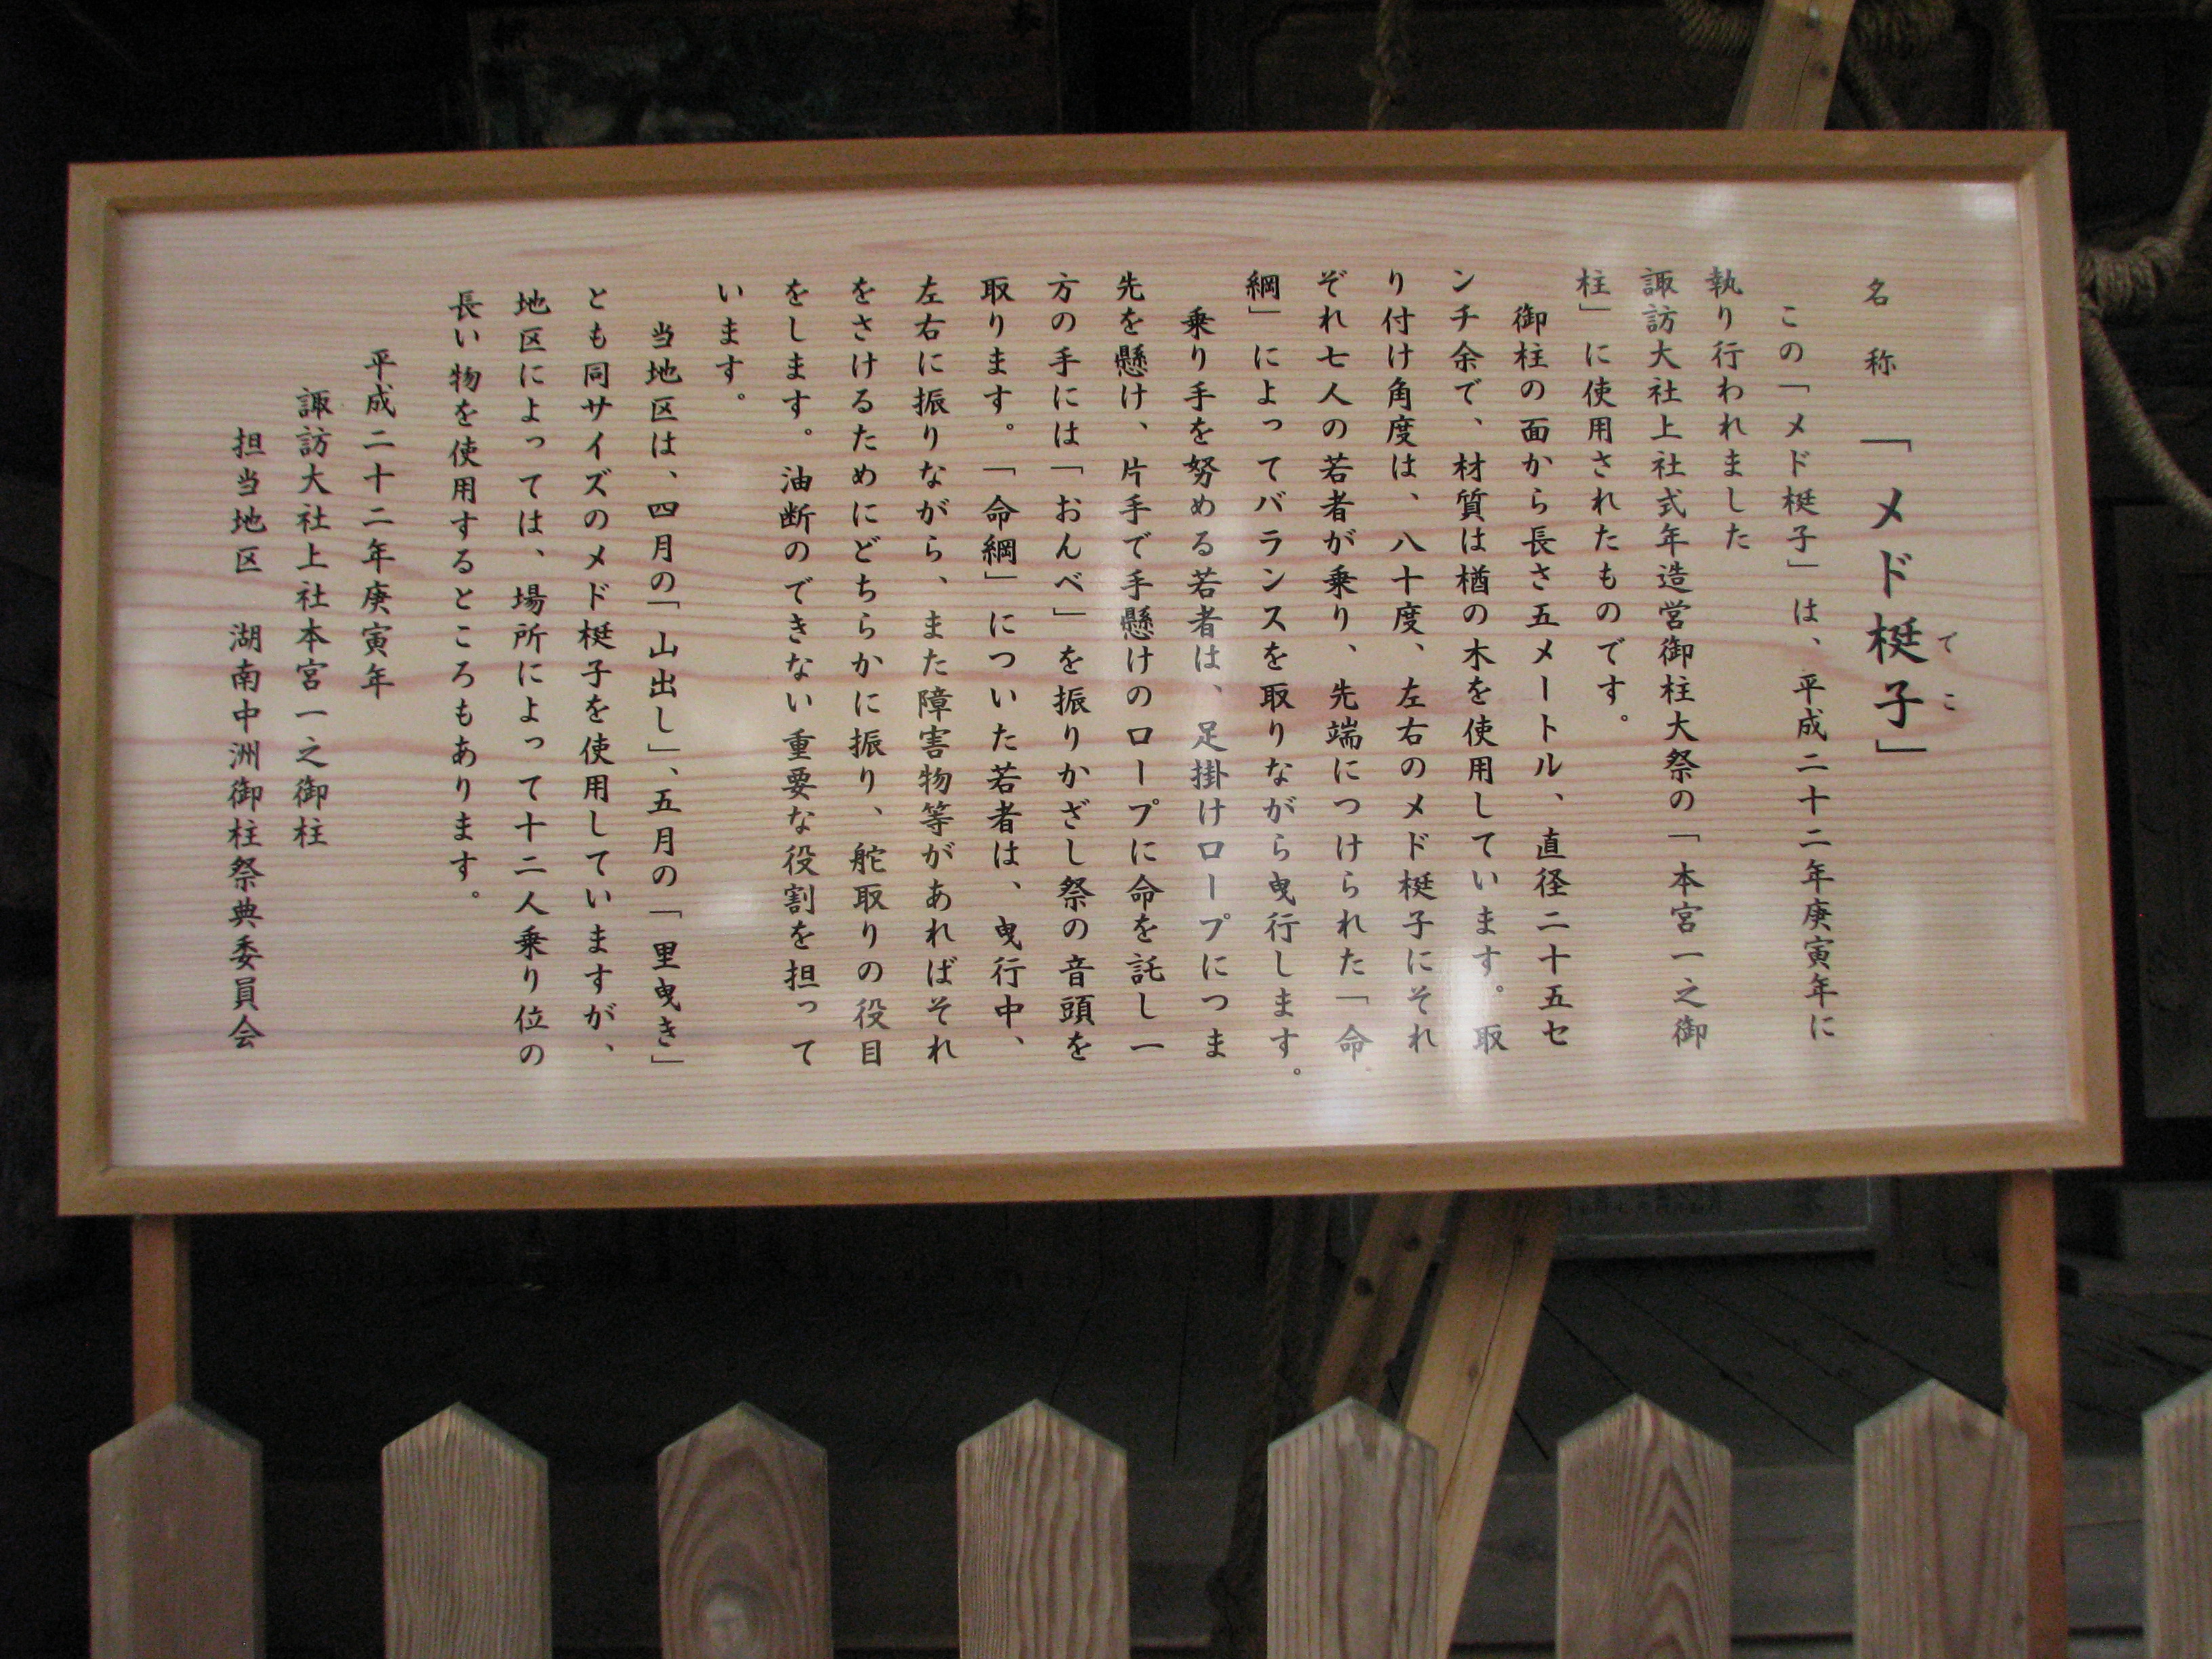 名称「メド梃子」
でこ
この「メド梃子」は、平成二十二年庚寅年に
執り行われました
諏訪大社上社式年造営御柱大祭の「本宮一之御
柱」に使用されたものです。
御柱の面から長さ五メートル、直径二十五セ
ンチ余で、材質は楢の木を使用しています。取
り付け角度は、八十度、左右のメド梃子にそれ
ぞれ七人の若者が乗り、先端につけられた「命
綱」によってバランスを取りながら曳行します。
乗り手を努める若者は、足掛けロープにつま
先を懸け、片手で手懸けのロープに命を託し一
方の手には「おんべ」を振りかざし祭の音頭を
取ります。「命綱」についた若者は、曳行中、
左右に振りながら、また障害物等があればそれ
をさけるためにどちらかに振り、舵取りの役目
をします。油断のできない重要な役割を担って
います。
当地区は、四月の「山出し」、五月の「里曳き」
とも同サイズのメド梃子を使用していますが、
地区によっては、場所によって十二人乗り位の
長い物を使用するところもあります。
平成二十二年庚寅年
諏訪大社上社本宮一之御柱
担当地区 湖南中洲御柱祭典委員会